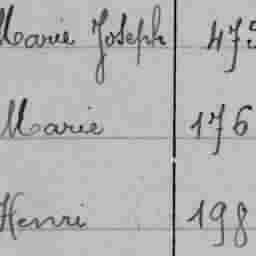 Marie Joseph 475
Marie 176
Henri 198